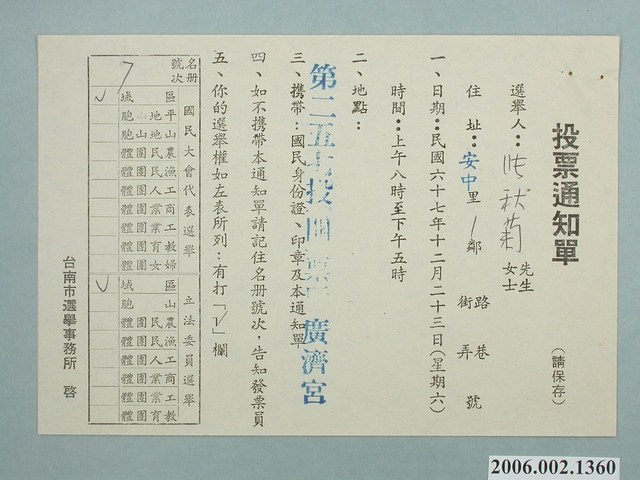 投票通知單
(請保存)
選舉人：張秋莉 先生 女士
住址：安中里 1 鄰 路街 巷弄 號
一、日期：民國六十七年十二月二十三日(星期六)
時間：上午八時至下午五時
二、地點：
第二五七投開票 廣濟宮
三、攜帶：國民身份證、印章及本通知單
四、如不攜帶本通知單請記住名册號次，告知發票員
五、你的選舉權如左表所列：有打「√」欄
名册號次 7
國民大會代表選舉
區域 √
平地山胞
山地山胞
農民團體
漁民團體
工人團體
商業團體
工業團體
教育團體
婦女團體
立法委員選舉
區域 √
山胞
農民團體
漁民團體
工人團體
商業團體
工業團體
教育團體
台南市選舉事務所 啓
2006.002.1360